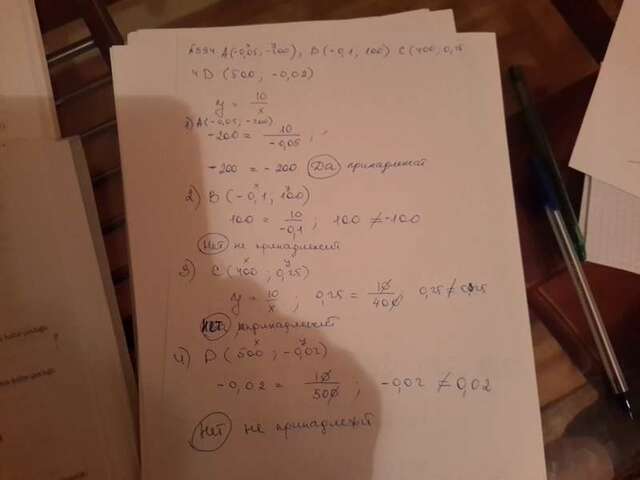 №594. A(-0,05; -200), B(-0,1; 100) C(400; 0,25
4D (500; -0,02)
y = 10/x
1) A(-0,05; -200)
-200 = 10/-0,05 ;
-200 = -200 Да принадлежит
2) B (-0,1; 100)
100 = 10/-0,1 ; 100 ≠ -100
Нет не принадлежит
3) C (400; 0,25)
y = 10/x ; 0,25 = 10/400 ; 0,25 ≠ 0,025
Нет принадлежит
4) D (500; -0,02)
-0,02 = 10/500 ; -0,02 ≠ 0,02
Нет не принадлежит